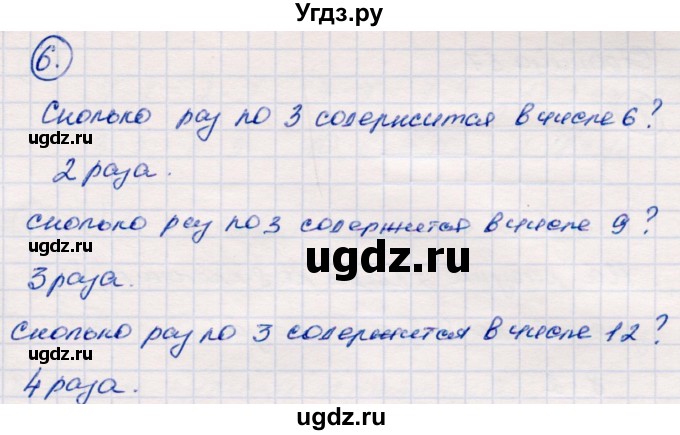 Угдз.ру
6.
Сколько раз по 3 содержится в числе 6?
ugdz.ru
2 раза.
Сколько раз по 3 содержится в числе 9?
ugdz.ru
ugdz.ru
3 раза.
Сколько раз по 3 содержится в числе 12?
ugdz.ru
4 раза.
ugdz.ru